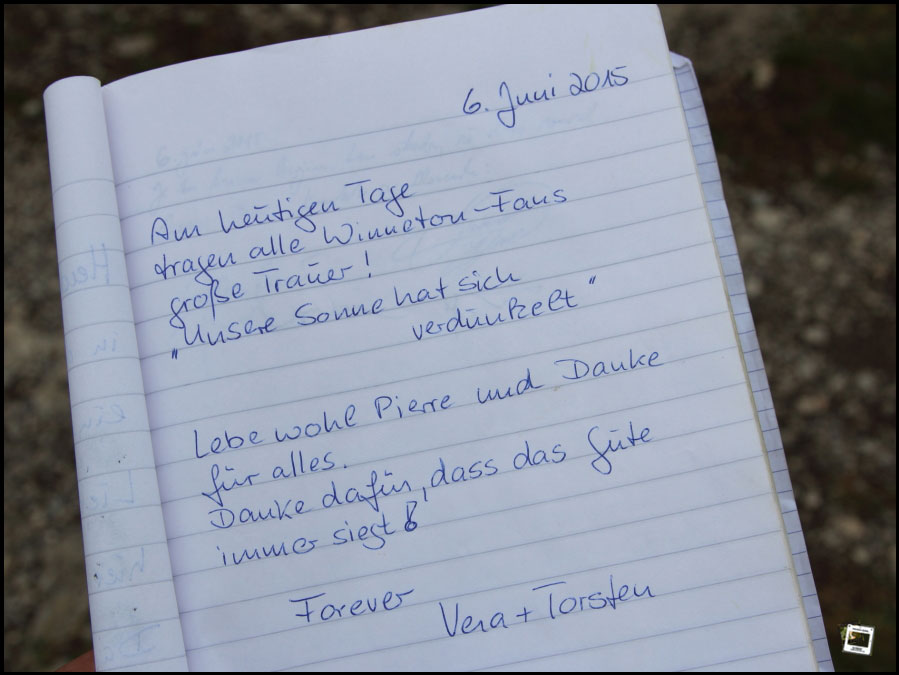 6. Juni 2015
Am heutigen Tage
tragen alle Winnetou-Fans
große Trauer!
"Unsere Sonne hat sich
verdunkelt"
Lebe wohl Pierre und Danke
für alles.
Danke dafür, dass das Gute
immer siegt!
Forever
Vera + Torsten